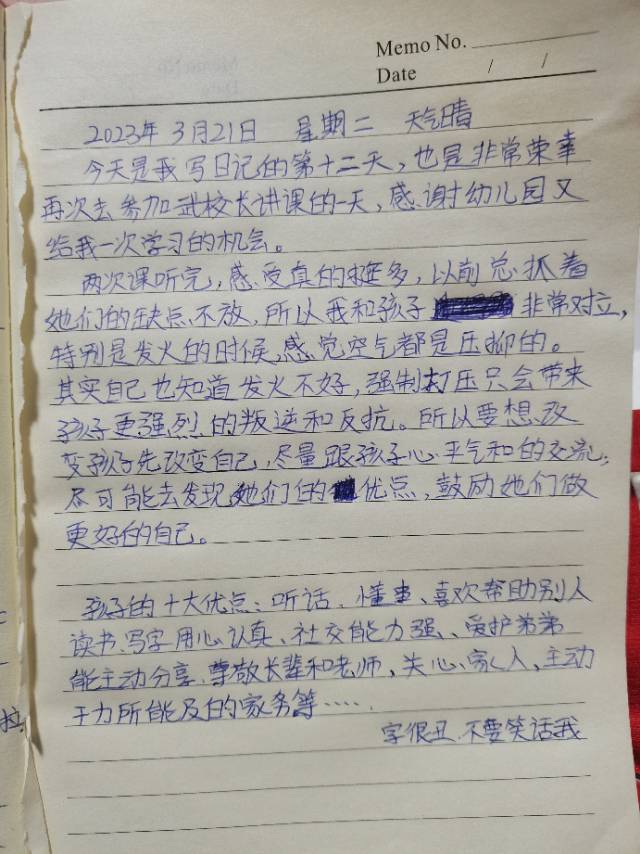 Memo No.
Date / /
2023年3月21日 星期二 天气晴
今天是我写日记的第十二天，也是非常荣幸
再次去参加武校长讲课的一天，感谢幼儿园又
给我一次学习的机会。
两次课听完，感受真的挺多，以前总抓着
她们的缺点不放，所以我和孩子 非常对立，
特别是发火的时候，感觉空气都是压抑的。
其实自己也知道发火不好，强制打压只会带来
孩子更强烈的叛逆和反抗。所以要想改
变孩子先改变自己，尽量跟孩子心平气和的交流；
尽可能去发现她们的优点，鼓励她们做
更好的自己。
孩子的十大优点：听话、懂事、喜欢帮助别人
读书、写字用心认真、社交能力强、爱护弟弟
能主动分享、尊敬长辈和老师，关心家人、主动
干力所能及的家务等……
字很丑、不要笑话我
拉